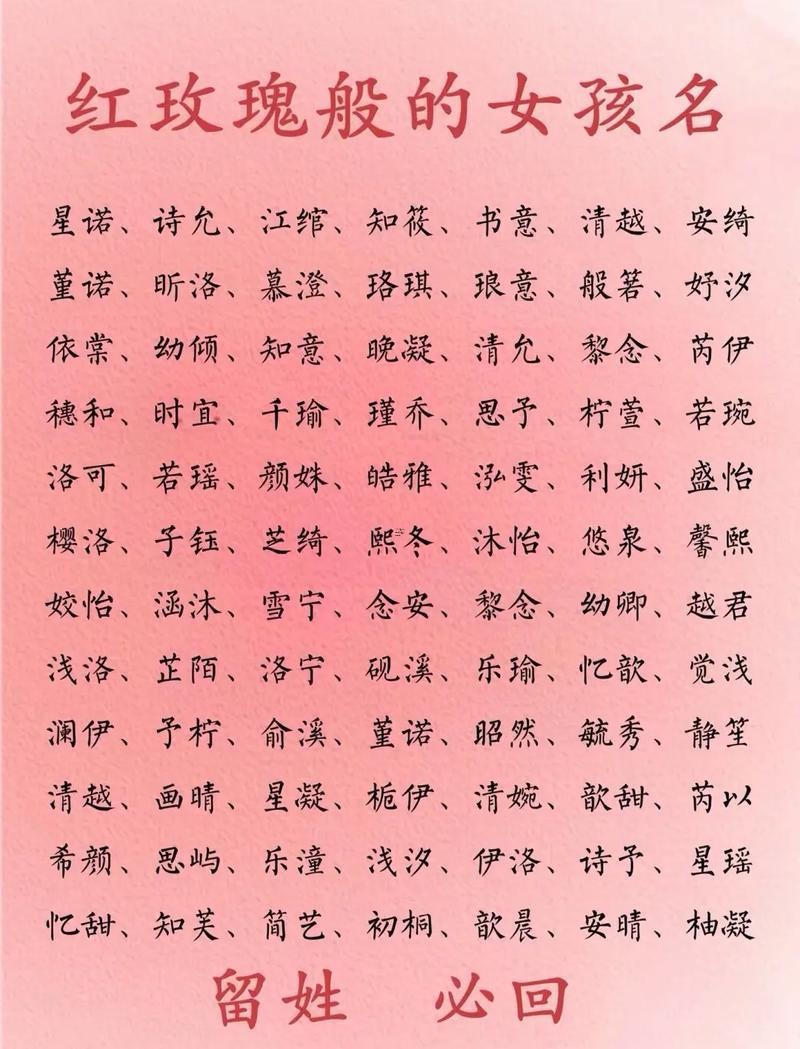 红玫瑰般的女孩名
星诺、诗允、江绾、知筱、书意、清越、安绮
堇诺、昕洛、慕澄、珞琪、琅意、般箬、妤汐
依棠、幼倾、知意、晚凝、清允、黎念、芮伊
穗和、时宜、千瑜、瑾乔、思予、柠萱、若琬
洛可、若瑶、颜姝、皓雅、泓雯、利妍、盛怡
樱洛、子钰、芝绮、熙冬、沐怡、悠泉、馨熙
姣怡、涵沐、雪宁、念安、黎念、幼卿、越君
浅洛、芷陌、洛宁、砚溪、乐瑜、忆歆、觉浅
澜伊、予柠、俞溪、堇诺、昭然、毓秀、静笙
清越、画晴、星凝、栀伊、清婉、歆甜、芮以
希颜、思屿、乐潼、浅汐、伊洛、诗予、星瑶
忆甜、知芙、简艺、初桐、歆晨、安晴、柚凝
留姓 必回